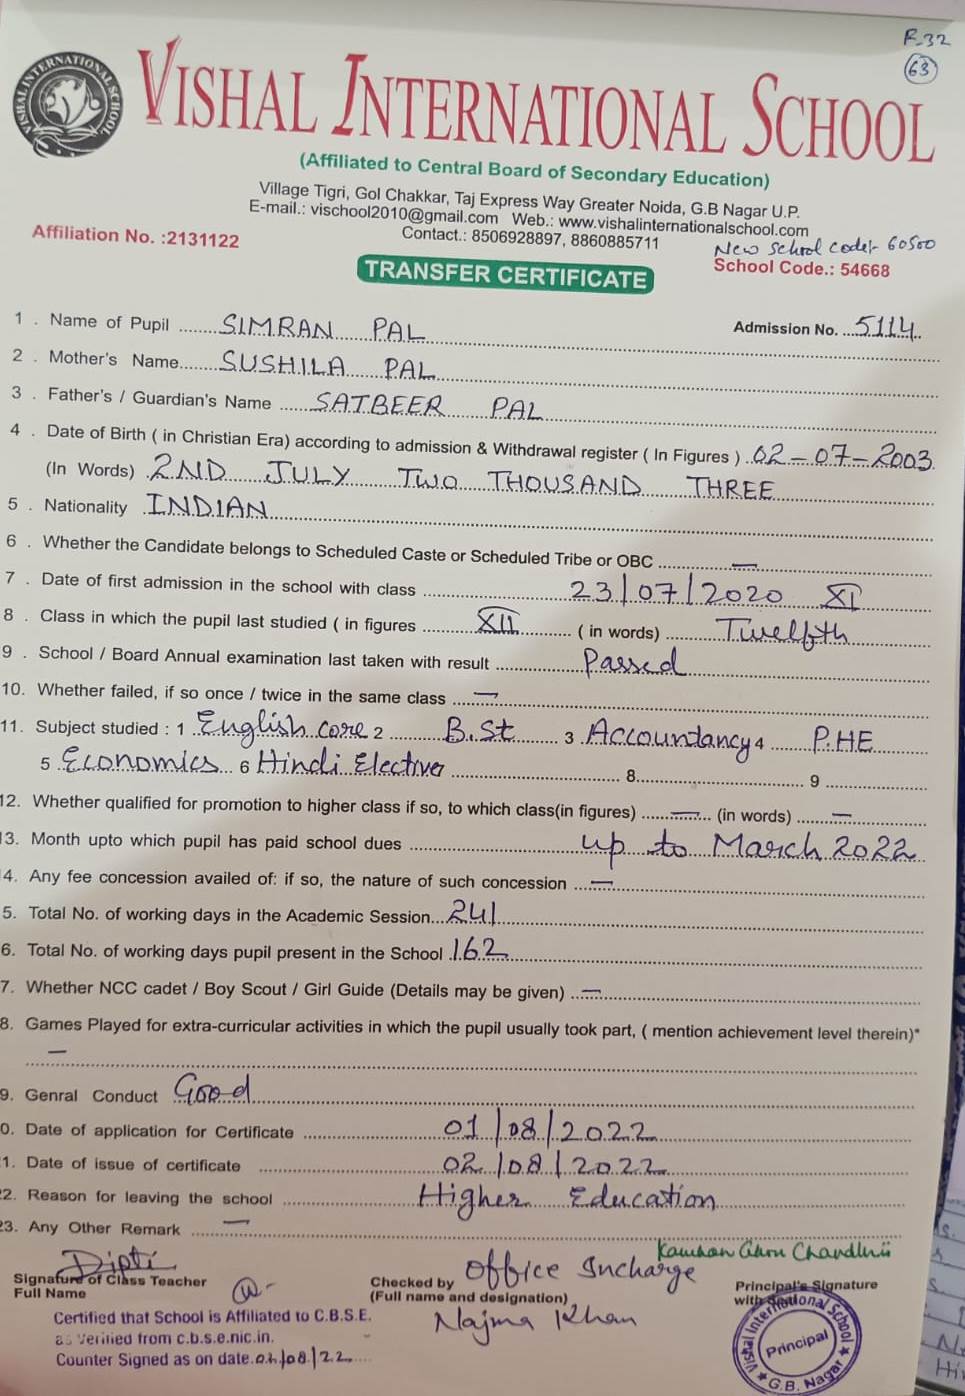 F-32
63
VISHAL INTERNATIONAL SCHOOL
VISHAL INTERNATIONAL SCHOOL
(Affiliated to Central Board of Secondary Education)
Village Tigri, Gol Chakkar, Taj Express Way Greater Noida, G.B Nagar U.P.
E-mail.: vischool2010@gmail.com Web.: www.vishalinternationalschool.com
Contact.: 8506928897, 8860885711
Affiliation No. :2131122
New School code:- 60500
School Code.: 54668
TRANSFER CERTIFICATE
1 . Name of Pupil SIMRAN PAL Admission No. 5114
2 . Mother's Name SUSHILA PAL
3 . Father's / Guardian's Name SATBEER PAL
4 . Date of Birth ( in Christian Era) according to admission & Withdrawal register ( In Figures ) 02-07-2003
(In Words) 2ND JULY TWO THOUSAND THREE
5 . Nationality INDIAN
6 . Whether the Candidate belongs to Scheduled Caste or Scheduled Tribe or OBC —
7 . Date of first admission in the school with class 23/07/2020 XI
8 . Class in which the pupil last studied ( in figures XII ( in words) Twelfth
9 . School / Board Annual examination last taken with result Passed
10. Whether failed, if so once / twice in the same class —
11. Subject studied : 1 English core 2 B.St 3 Accountancy 4 P.HE
5 Economics 6 Hindi Elective 8 9
12. Whether qualified for promotion to higher class if so, to which class(in figures) — (in words) —
13. Month upto which pupil has paid school dues up to March 2022
4. Any fee concession availed of: if so, the nature of such concession —
5. Total No. of working days in the Academic Session 241
6. Total No. of working days pupil present in the School 162
7. Whether NCC cadet / Boy Scout / Girl Guide (Details may be given) —
8. Games Played for extra-curricular activities in which the pupil usually took part, ( mention achievement level therein)*
—
9. Genral Conduct Good
0. Date of application for Certificate 01/08/2022
1. Date of issue of certificate 02/08/2022
2. Reason for leaving the school Higher Education
23. Any Other Remark —
Dipti
Signature of Class Teacher
Full Name
Checked by Office Incharge
(Full name and designation)
Najma Khan
Principal's Signature
with
Vishal International School
Principal
G.B. Nagar
Certified that School is Affiliated to C.B.S.E.
as Verified from c.b.s.e.nic.in.
Counter Signed as on date 02/08/22